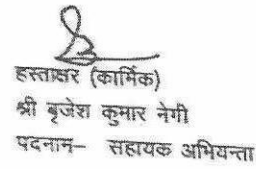 हस्ताक्षर (कार्मिक)
श्री बृजेश कुमार नेगी
पदनाम– सहायक अभियन्ता